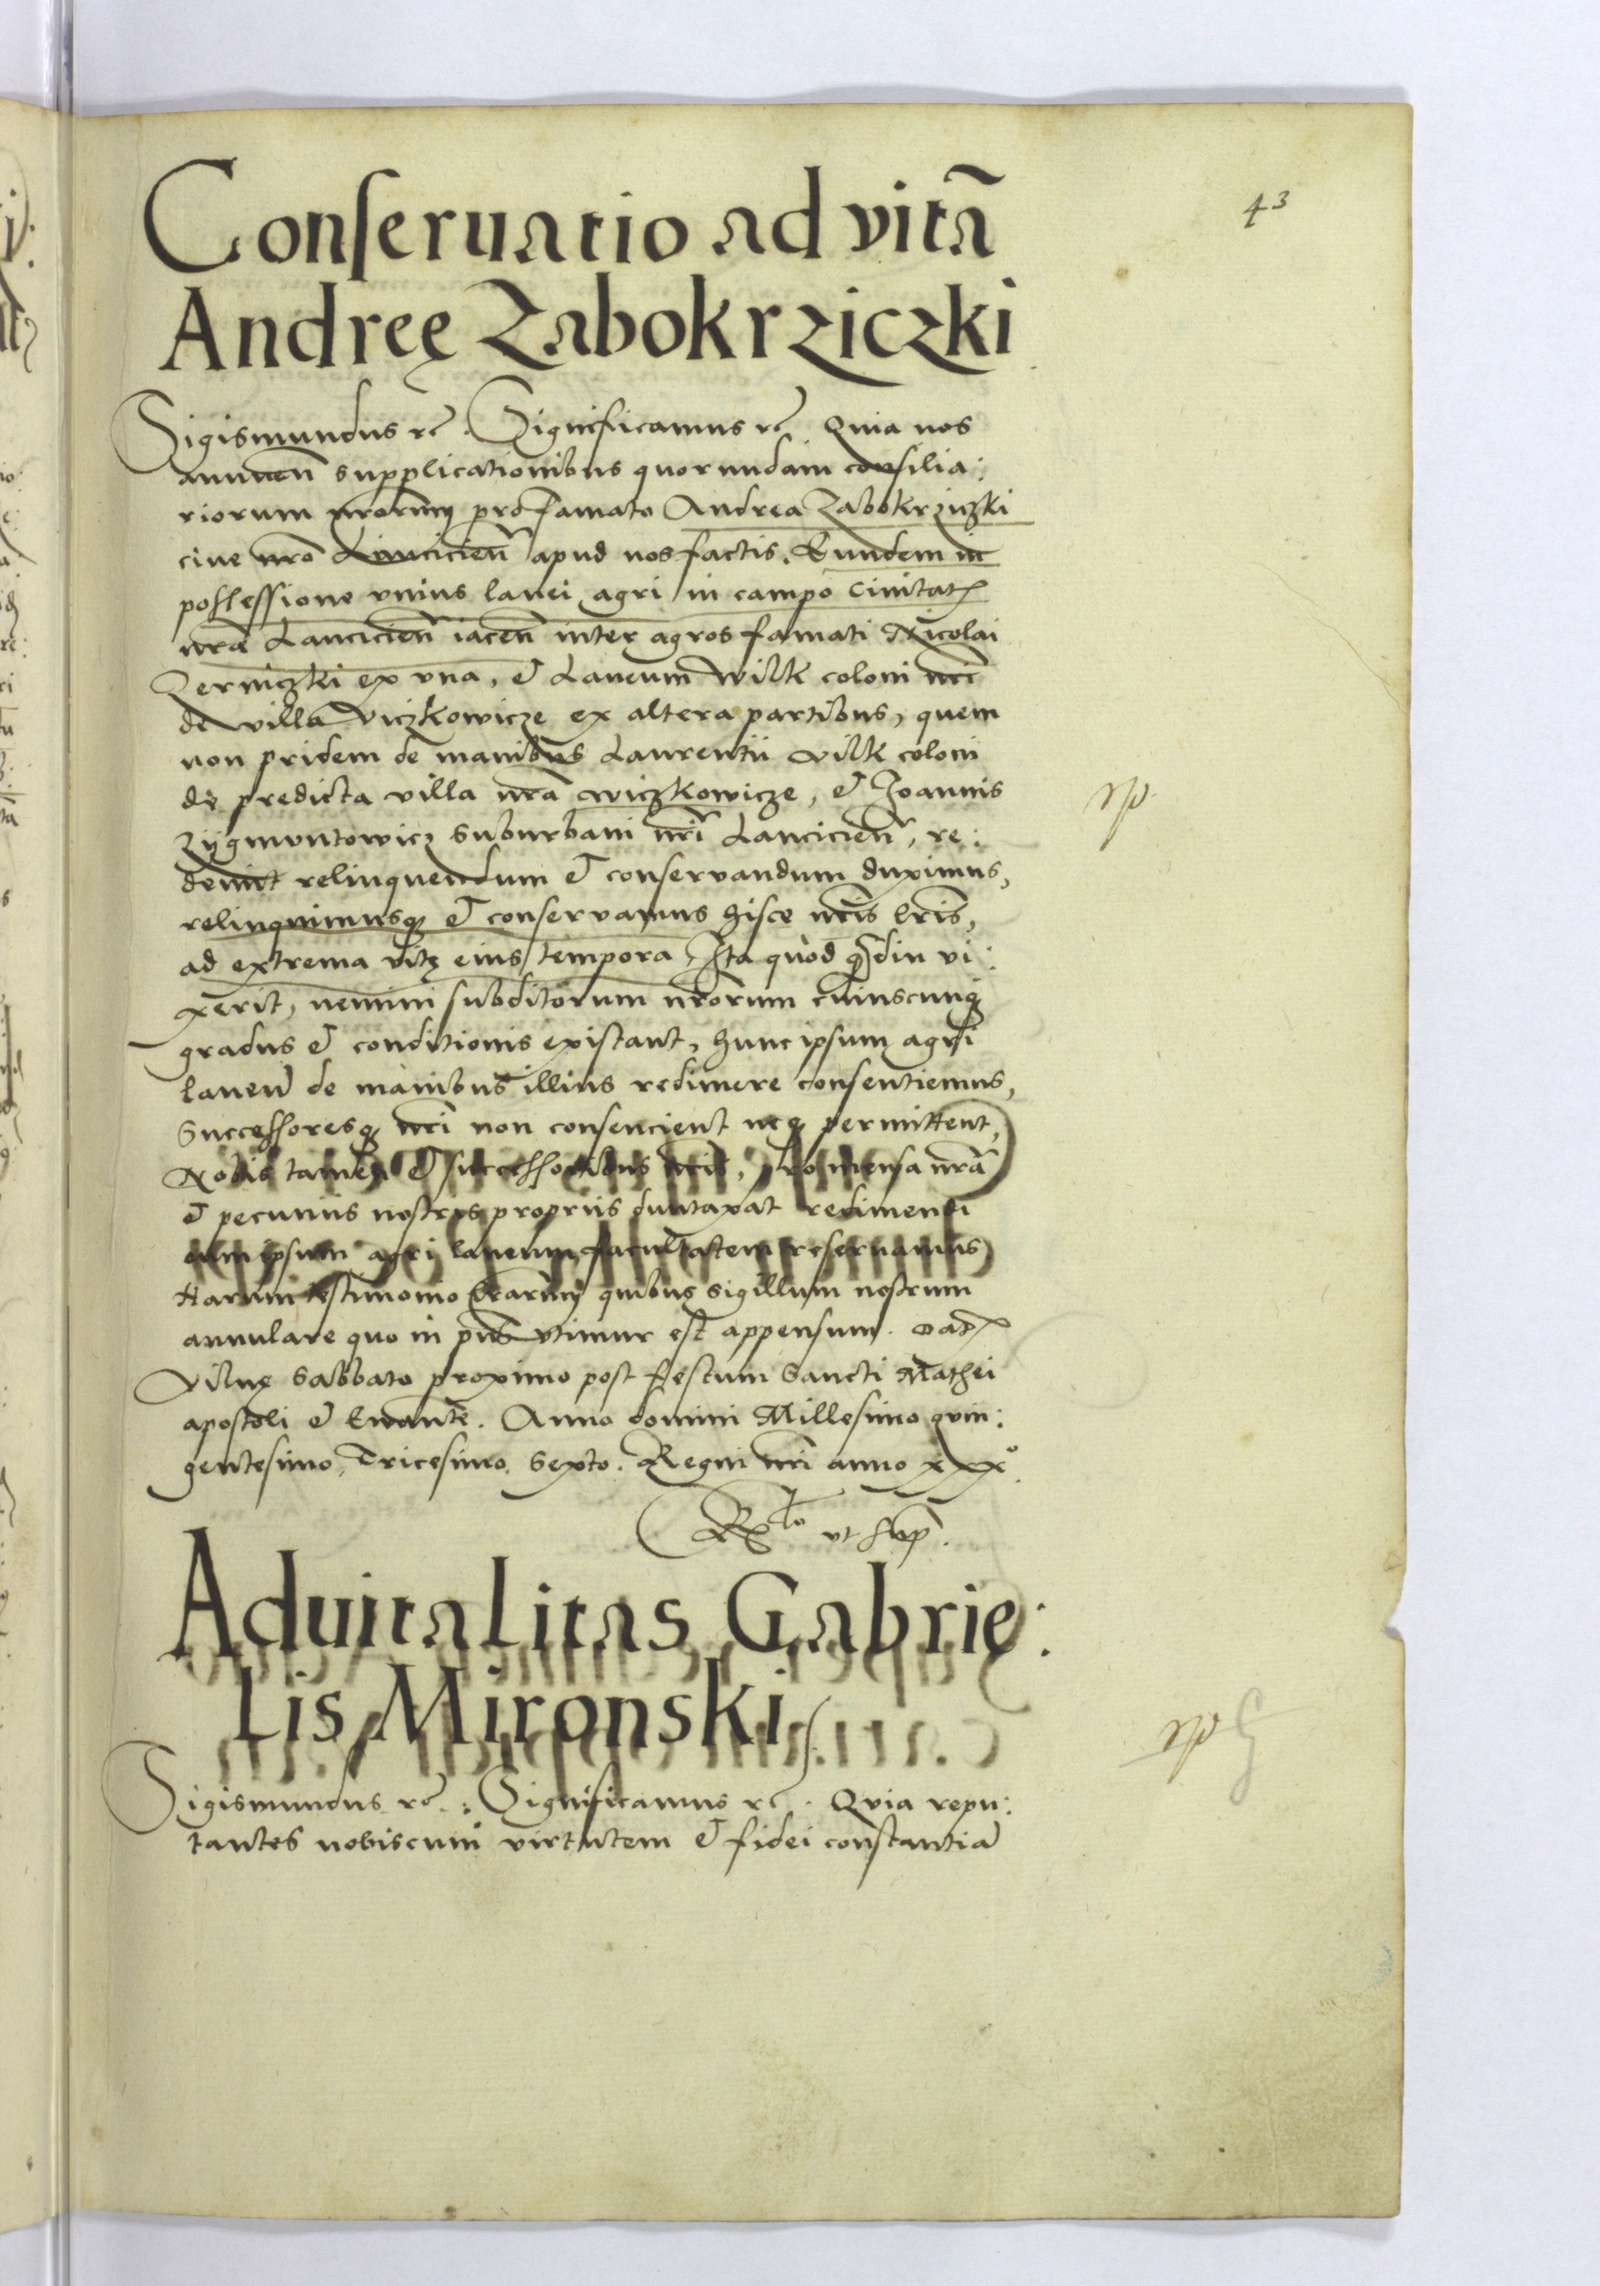 43
Conseruatio ad vitã
Andreę Zabokrziczki
Sigismundus rc̃. Significamus rc̃. Quia nos
annueñ supplicationibus quorundam consilia:
riorum nr̃orum pro famato Andrea Zabokrziczki
ciue nr̃o Lancicieñ apud nos factis. Eundem in
possessione vnius lanei agri in campo Ciuitatꝭ
nr̃a Lancicieñ iaceñ inter agros famati Nicolai
Zerniczki ex vna, et Laneum Wilk coloni nr̃i
de villa Viczkowicze ex altera partibus, quem
non pridem de manibus Laurentii Vilk coloni
de predicta villa nr̃a Wiczkowicze, et Joannis
Zygmvntowicz suburbani nr̃i Lancicieñ, re:
demit relinquendum et conservandum duximus,
relinquimusqȝ et conservamus hisce nr̃is lr̃is,
ad extrema vitę eius tempora, Ita quòd qȝdiu vi:
xerit, nemini subditorum nr̃orum cuiuscunqȝ
gradus et conditionis existant, hunc ipsum agri
laneũ de manibus illius redimere consentiemus,
Successoresqȝ nr̃i non consencient neqȝ permittent,
Nobis tamen et successoribus nr̃is, pro mensa nr̃a
et pecuniis nostris propriis duntaxat redimendi
eum ipsum agri laneum facultatem reseruamus
Harum testimonio lr̃arum quibus sigillum nostrum
annulare quo in pñs vtimur est appensum. Datꝭ
Vilnę Sabbato proximo post festum Sancti Mathei
apostoli et Ewanĩe. Anno domini Millesimo quin:
gentesimo, Tricesimo, Sexto. Regni nr̃i anno xxxº
Rlo vt sup̃.
Aduitalitas Gabrie:
lis Mironski
Sigismundus rc̃.: Significamus rc̃. Quia repu:
tantes nobiscum virtutem et fidei constantiã